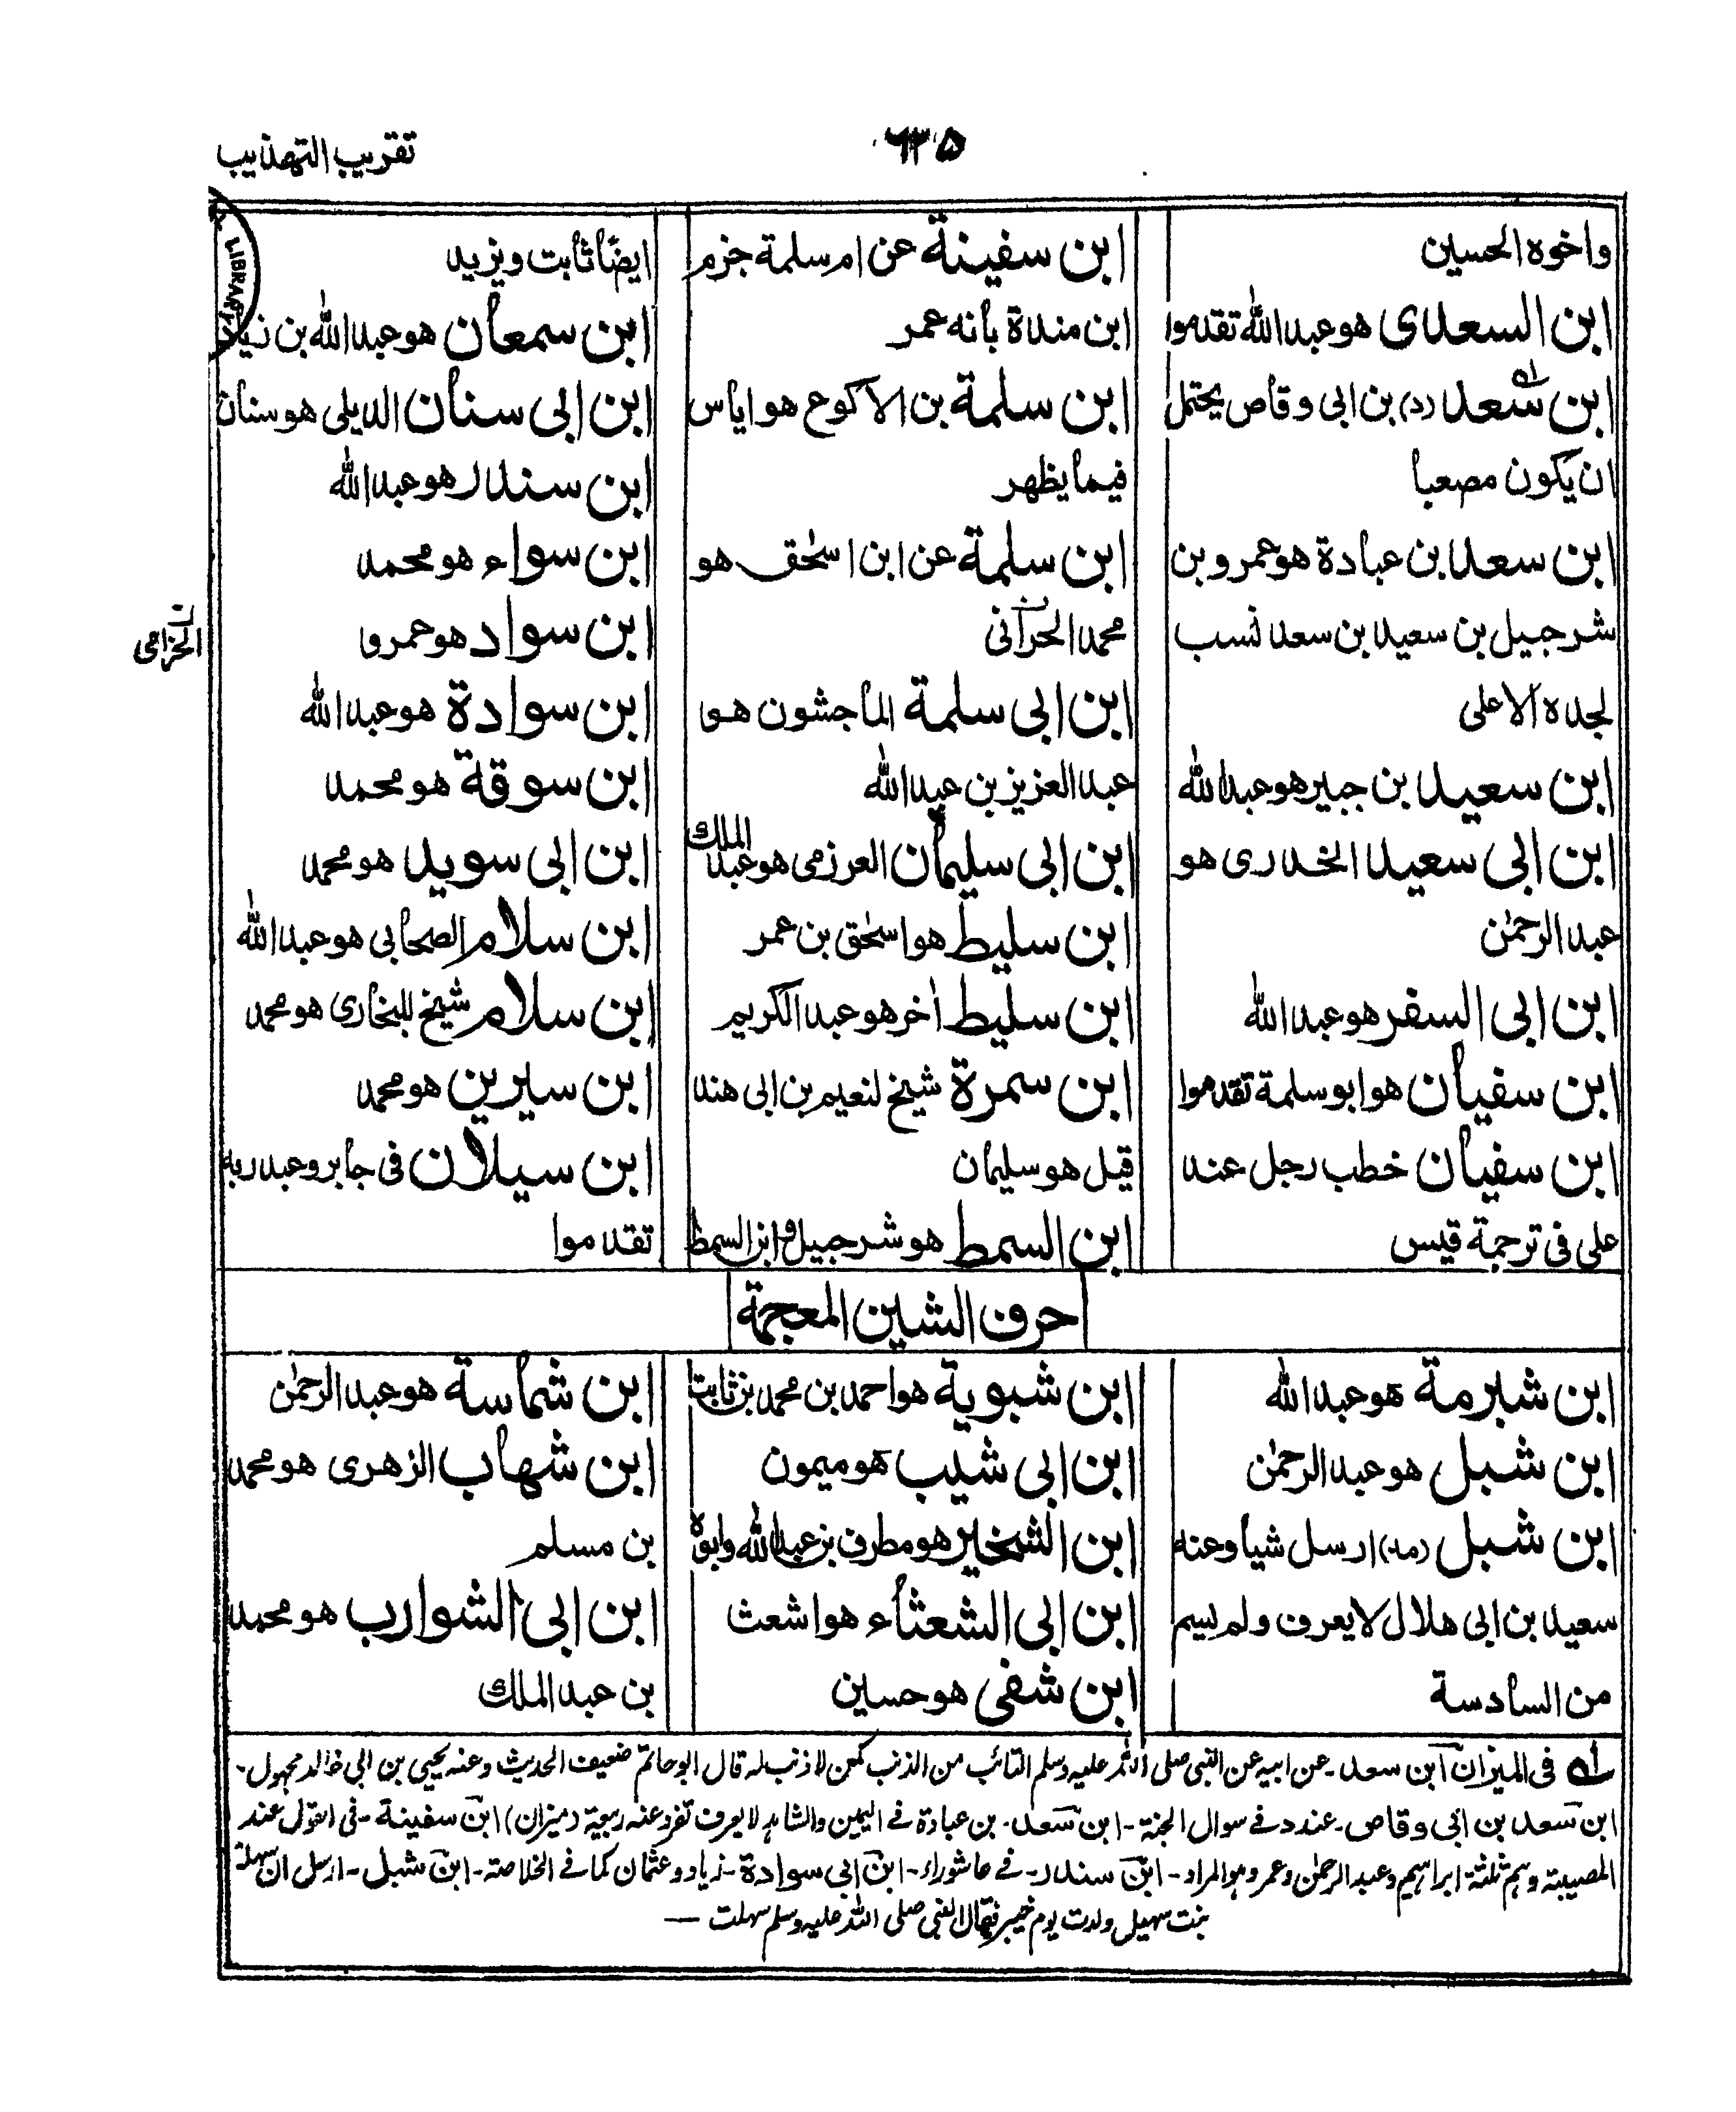 تقريب التهذيب
٦٣٥
واخوه الحسين
ابن السعدى هو عبدالله تقدموا
ابن سعد (د) بن ابى وقاص يحتمل
ان يكون مصعبا
ابن سعد بن عبادة هو عمرو بن
شرجيل بن سعيد بن سعد نسب
لجده الاعلى
ابن سعيد بن جبير هو عبدالله
ابن ابى سعيد الخدرى هو
عبد الرحمٰن
ابن ابى السفر هو عبدالله
ابن سفيان هو ابو سلمة تقدموا
ابن سفيان خطب رجل عند
على فى ترجمة قيس
ابن سفينة عن ام سلمة جزم
ابن مندة بانه عمر
ابن سلمة بن الاكوع هو اياس
فيما يظهر
ابن سلمة عن ابن اسحٰق هو
محمد الحرانى
ابن ابى سلمة الماجشون هو
عبد العزيز بن عبدالله
ابن ابى سليمان العرزمى هو عبد الملك
ابن سليط هو اسحٰق بن عمر
ابن سليط اٰخر هو عبد الكريم
ابن سمرة شيخ لنعيم بن ابى هند
قيل هو سليمان
ابن السمط هو شرجيل و ابن السمط
ايضًا ثابت ويزيد
ابن سمعان هو عبدالله بن زياد
ابن ابى سنان الديلى هو سنان
ابن سندر هو عبدالله
ابن سواء هو محمد
ابن سواد هو عمرو
ابن سوادة هو عبدالله
ابن سوقة هو محمد
ابن ابى سويد هو محمد
ابن سلام الصحابى هو عبدالله
ابن سلام شيخ للبخارى هو محمد
ابن سيرين هو محمد
ابن سيلان فى جابر وعبد ربه
تقدموا
حرف الشين المعجمة
ابن شبرمة هو عبدالله
ابن شبل هو عبد الرحمٰن
ابن شبل (مد) ارسل شيا وعنه
سعيد بن ابى هلال لا يعرف ولم يسم
من السادسة
ابن شبوية هو احمد بن محمد بن ثابت
ابن ابى شبيب هو ميمون
ابن الشخير هو مطرف بن عبدالله وابوه
ابن ابى الشعثاء هو اشعث
ابن شفى هو حسين
ابن شماسة هو عبد الرحمٰن
ابن شهاب الزهرى هو محمد
بن مسلم
ابن ابى الشوارب هو محمد
بن عبد الملك
له فى الميزان ابن سعد - عن ابيه عن النبى صلى الله عليه وسلم التائب من الذنب كمن لا ذنب له قال ابوحاتم ضعيف الحديث وعنه يحيى بن ابى خالد مجهول -
ابن سعد بن ابى وقاص - عند د فى سوال الجنة - ابن سعد - بن عبادة فى اليمين والشاهد لا يعرف تفرد عنه ربيعة (ميزان) ابن سفينة - فى القول عند
المصيبة وهم ثلثة ابراهيم وعبد الرحمٰن وعمر وهو المراد - ابن سندر - فى عاشوراء - ابن ابى سوادة - زياد وعثمان كما فى الخلاصة - ابن شبل - ارسل ان سهلة
بنت سهيل ولدت يوم خيبر فقال النبى صلى الله عليه وسلم سهلت —
الخزامى
LIBRARY